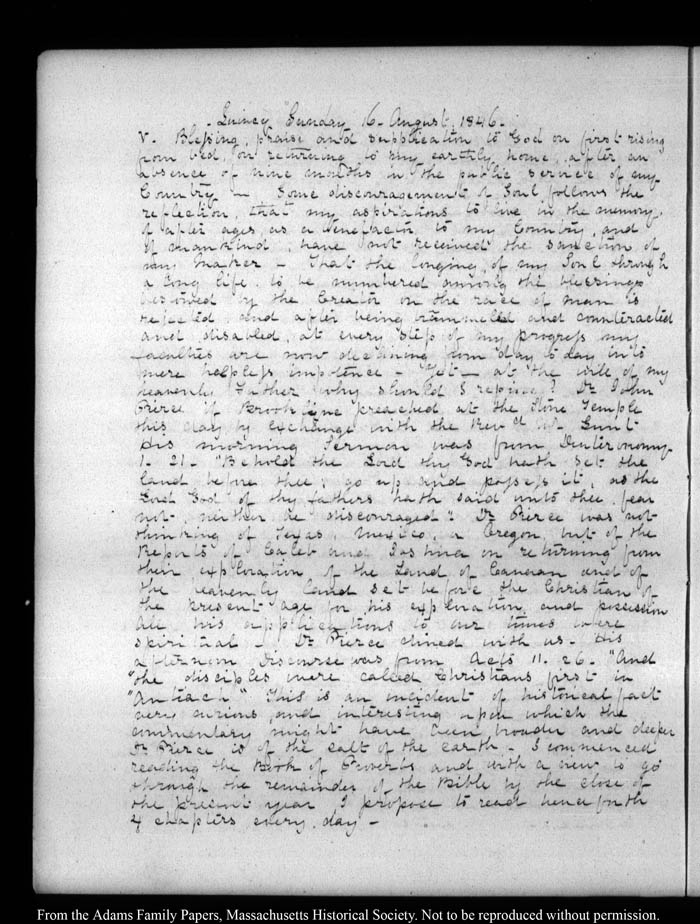 Quincy Sunday 16. August 1846.
V. Blessing, praise and supplication to God on first rising
from bed, on returning to my earthly home, after an
absence of nine months in the public service of my
Country — Some discouragement of Soul follows the
reflection, that my aspirations to live in the memory
of after ages as a benefactor, to my Country, and
of mankind, have not received the sanction of
my Maker — That the longing of my Soul through
a long life, to be numbered among the blessings
bestowed by the Creator on the race of man is
rejected, and after being trammeled and counteracted
and disabled, at every step of my progress my
faculties are now declining from day to day into
mere helpless impotence — Yet — at the will of my
heavenly Father why should I repine? Dr John
Pierce of Brookline preached at the Stone Temple
this day by exchange with the Revd Mr Lunt
His morning Sermon was from Deuteronomy
1. 21. "Behold the Lord thy God hath set the
land before thee; go up and possess it, as the
Lord God of thy fathers hath said unto thee, fear
not, neither be discouraged". Dr Pierce was not
thinking of Texas, Mexico, or Oregon, but of the
Reports of Caleb and Joshua on returning from
their exploration of the Land of Canaan and of
the heavenly land set before the Christian of
the present age for his exploration and possession
All his applications to our times were
spiritual — Dr Pierce dined with us. His
afternoon Discourse was from Acts 11. 26. "And
"the disciples were called Christians first in
"Antioch" This is an incident of historical fact
very curious and interesting upon which the
commentary might have been broader and deeper
Dr Pierce is of the salt of the earth — I commenced
reading the Book of Proverbs and with a view to go
through the remainder of the Bible by the close of
the present year I propose to read henceforth
4 chapters every day —
From the Adams Family Papers, Massachusetts Historical Society. Not to be reproduced without permission.